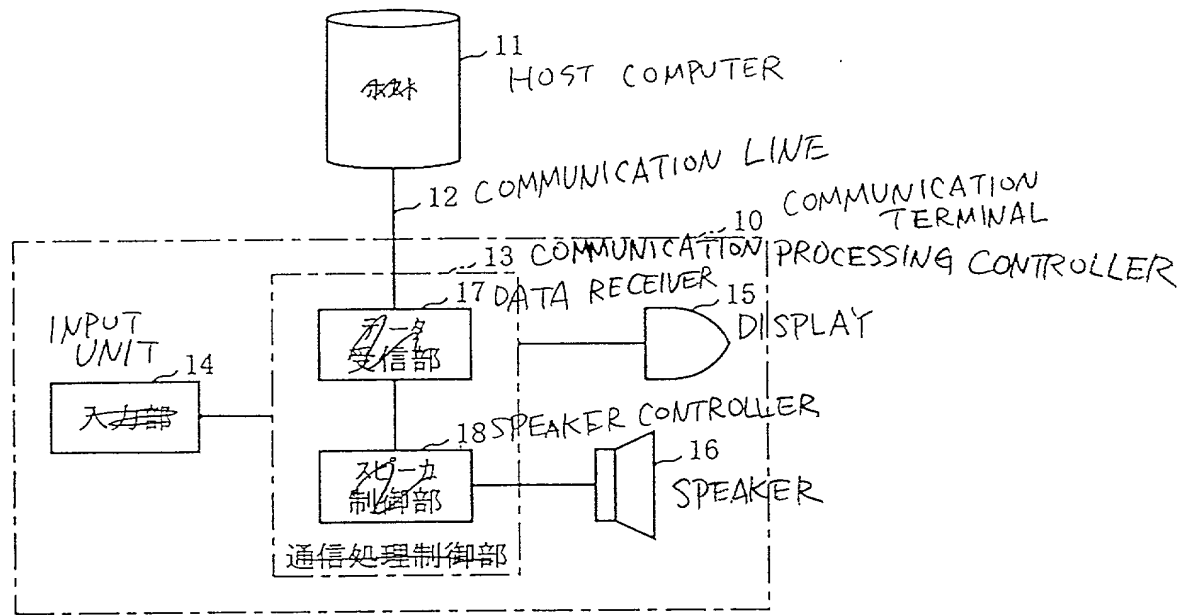 11
HOST COMPUTER
ホスト
12 COMMUNICATION LINE
10 COMMUNICATION
TERMINAL
13 COMMUNICATION PROCESSING CONTROLLER
17 DATA RECEIVER
データ
受信部
15
DISPLAY
INPUT
UNIT
14
入力部
18 SPEAKER CONTROLLER
スピーカ
制御部
16
SPEAKER
通信処理制御部